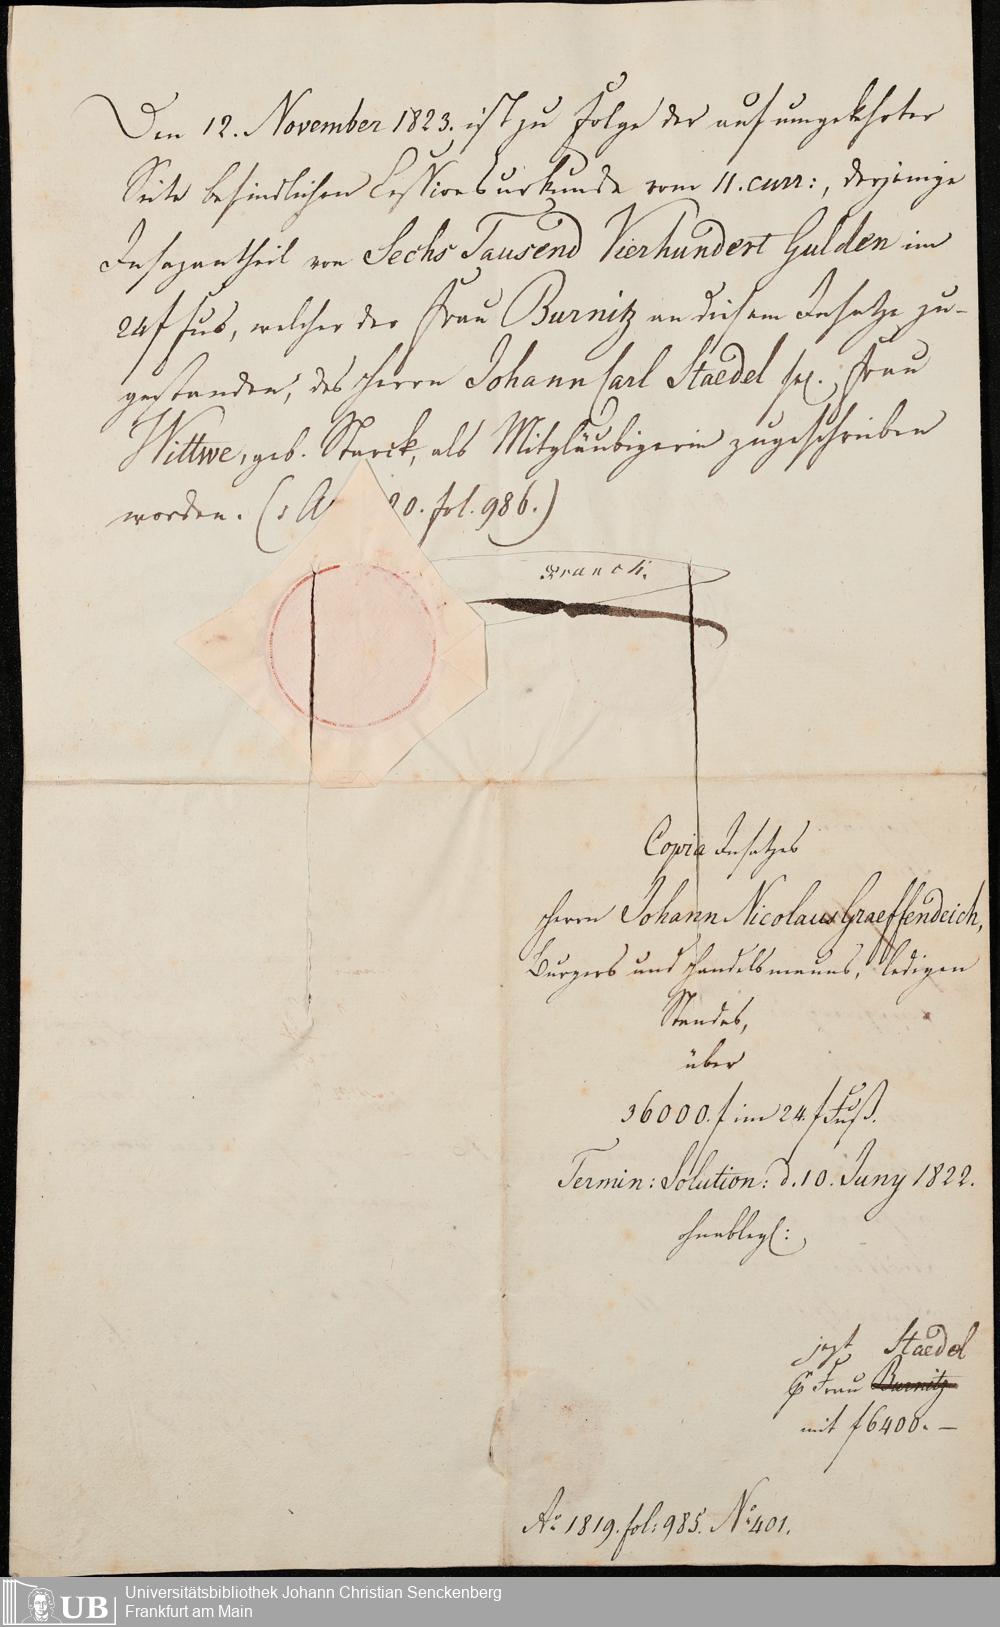 Den 12. November 1823. ist zu Folge der auf umgekehrter
Seite befindlichen Cessionsurkunde vom 11. curr:, derjenige
Insazantheil von Sechs Tausend Vierhundert Gulden im
24 f Fus, welcher der Frau Burnitz an diesem Insatze zu-
gestanden, des Herrn Johann Carl Staedel sel. Frau
Wittwe, geb. Starck, als Mitgläubigerin zugeschrieben
worden. (: A 20. fol. 986.)
Franck.
Copia Insatzes
Herrn Johann Nicolaus Graeffendeich,
Burgers und Handelsmanns, ledigen
Standes,
über
36000. f im 24. f Fuß.
Termin: Solution: d. 10. Juny 1822.
jezt Staedel
Frau Burnitz
mit f 6400. —
Ao. 1819. fol: 985. No. 401.
UB
Universitätsbibliothek Johann Christian Senckenberg
Frankfurt am Main